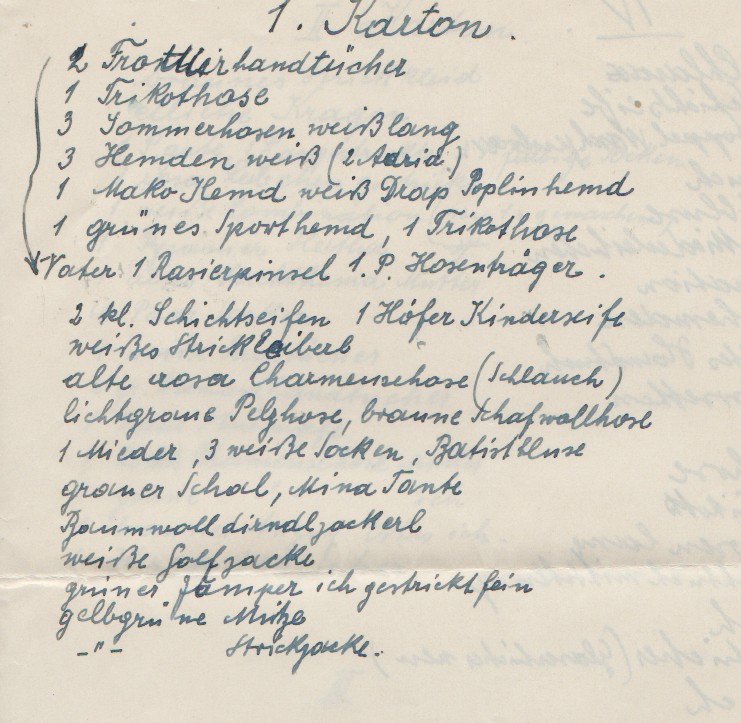 1. Karton.
2 Frottierhandtücher
1 Trikothose
3 Sommerhosen weiß lang
3 Hemden weiß (2 Adria)
1 Mako Hemd weiß Drap Poplinhemd
1 grünes Sporthemd, 1 Trikothose
Vater 1 Rasierpinsel 1 P. Hosenträger.
2 kl. Schichtseifen 1 Hofer Kinderseife
weißes Strickleiberl
alte rosa Charmeusehose (Schlauch)
lichtgraue Pelzhose, braune Schafwollhose
1 Mieder, 3 weiße Socken, Batistbluse
grauer Schal, Mina Tante
Baumwolldirndljackerl
weiße Golfjacke
grüner Jumper ich gestrickt fein
gelbgrüne Mütze
-"- Strickjacke.